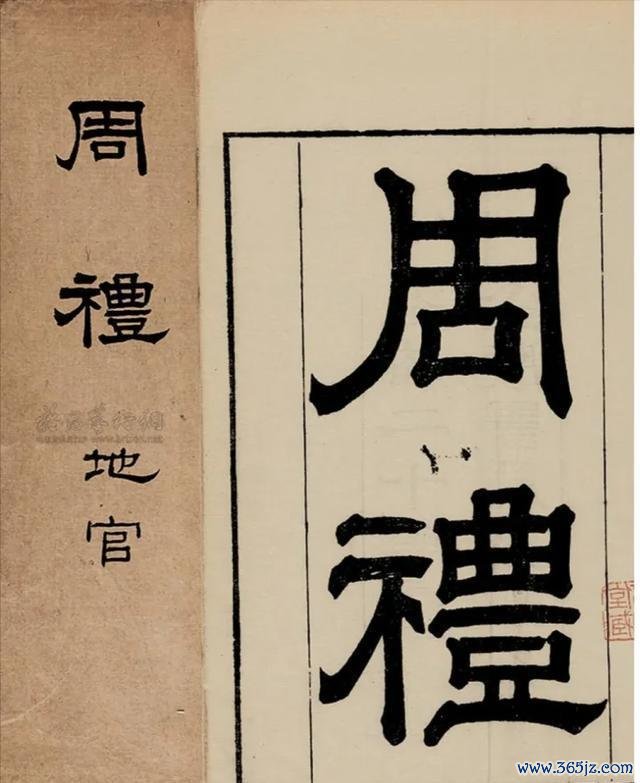 周禮
地官
周禮
www.365jz.com